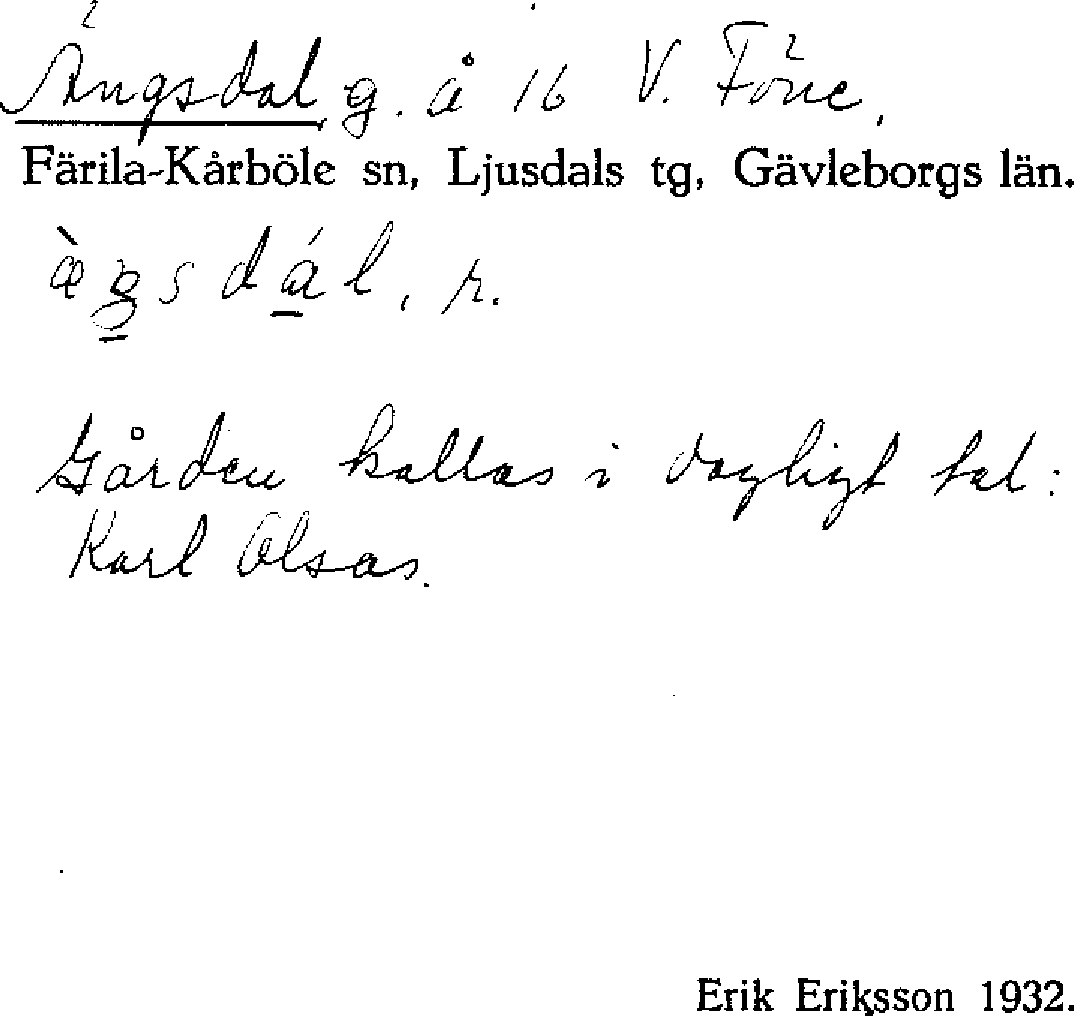 Ängsdal g. å 16 V. Föne,
Färila-Kårböle sn, Ljusdals tg, Gävleborgs län.
Gården kallas i dagligt tal:
Karl Olsas.
Erik Eriksson 1932.